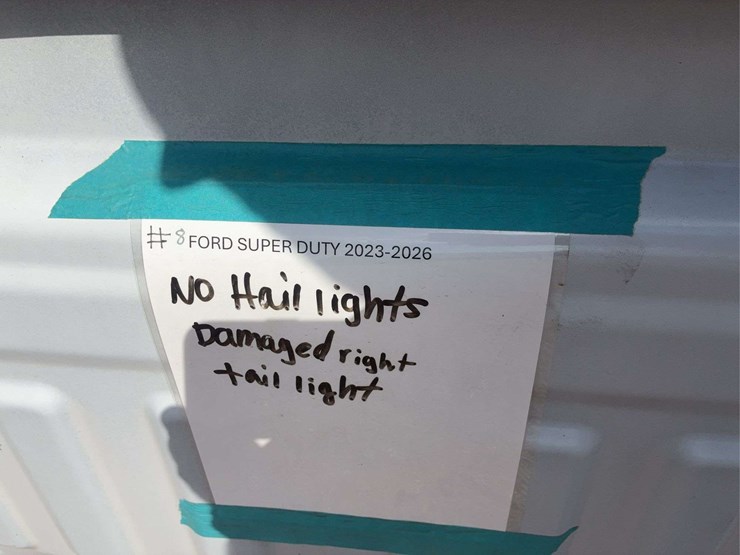 #8 FORD SUPER DUTY 2023-2026
NO Hail lights
Damaged right
tail light